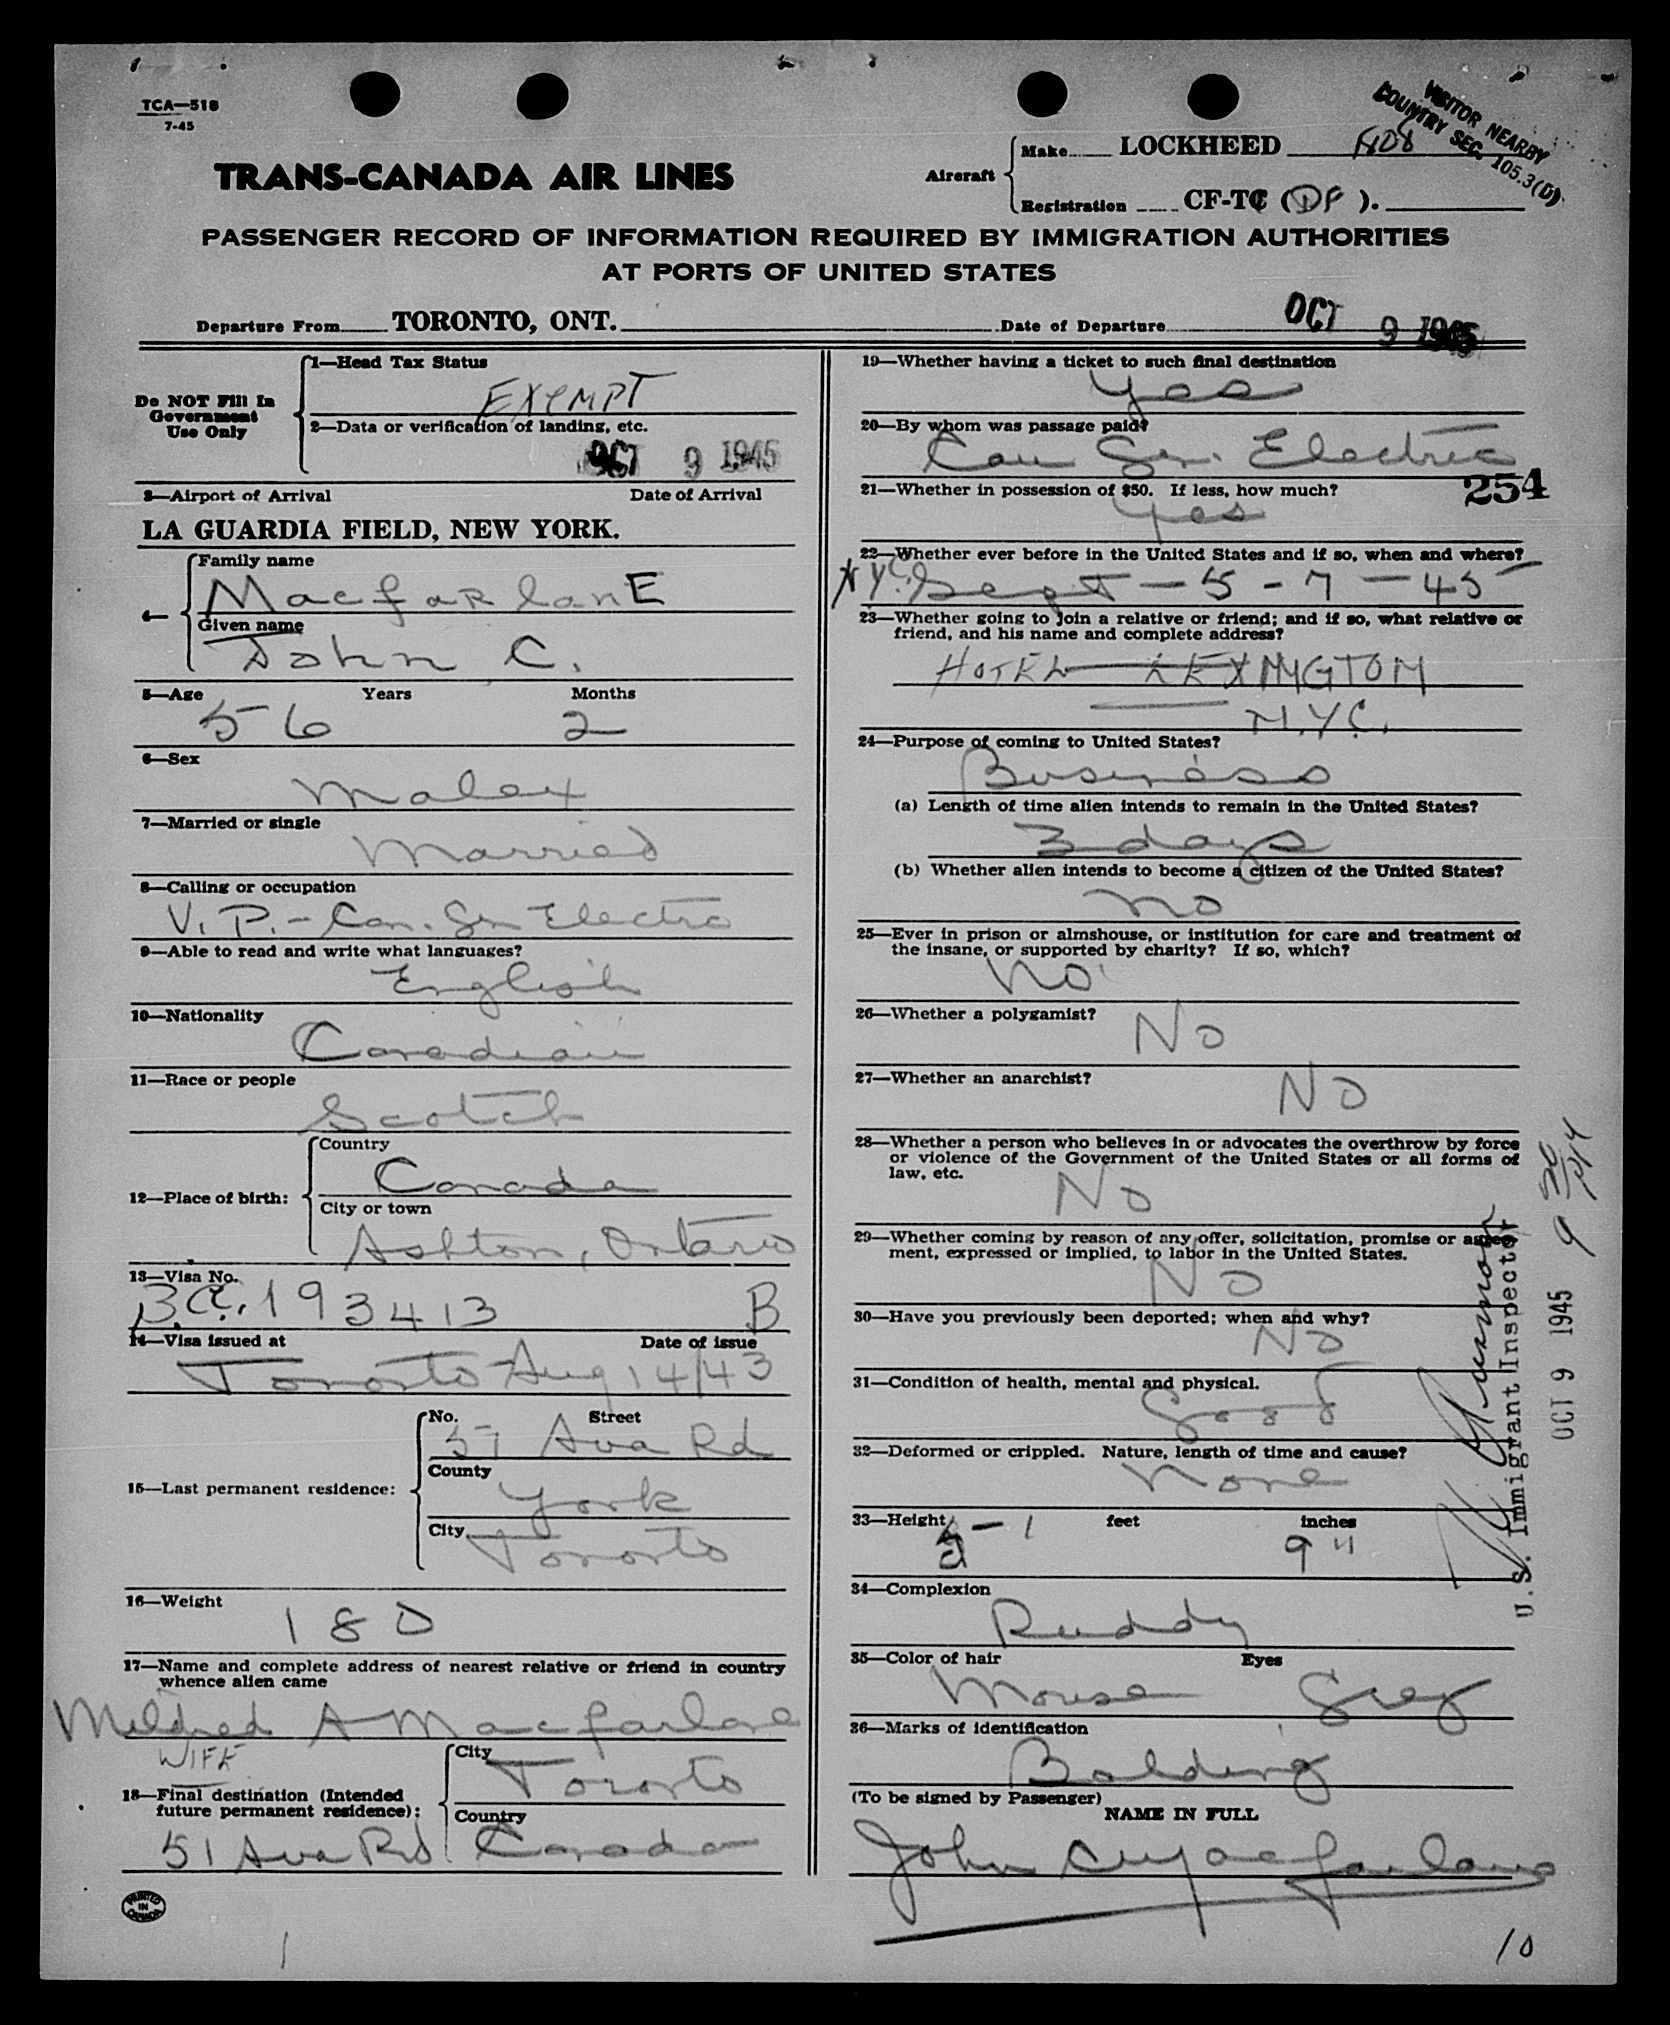 TCA—518
7-45
VISITOR NEARBY
COUNTRY SEC. 105.3(D)
TRANS-CANADA AIR LINES
Aircraft
Make LOCKHEED
Registration CF-TC ( ).
PASSENGER RECORD OF INFORMATION REQUIRED BY IMMIGRATION AUTHORITIES
AT PORTS OF UNITED STATES
Departure From TORONTO, ONT. Date of Departure OCT 9 1945
Do NOT Fill In
Government
Use Only
1—Head Tax Status
EXEMPT
2—Data or verification of landing, etc.
OCT 9 1945
3—Airport of Arrival Date of Arrival
LA GUARDIA FIELD, NEW YORK.
4—
Family name
MacfaRlanE
Given name
John C.
5—Age Years Months
56 2
6—Sex
Male
7—Married or single
Married
8—Calling or occupation
V. P. - Can. Gen Electric
9—Able to read and write what languages?
English
10—Nationality
Canadian
11—Race or people
Scotch
12—Place of birth:
Country
Canada
City or town
Ashton, Ontario
13—Visa No.
B.C. 193413 B
14—Visa issued at Date of issue
Toronto Aug 14/43
15—Last permanent residence:
No. Street
51 Ava Rd
County
York
City
Toronto
16—Weight
180
17—Name and complete address of nearest relative or friend in country
whence alien came
Mildred A Macfarlane
WIFE
18—Final destination (Intended
future permanent residence):
City
Toronto
Country
51 Ava Rd Canada
PRINTED
IN
CANADA
1
19—Whether having a ticket to such final destination
Yes
20—By whom was passage paid?
Can Gen. Electric
254
21—Whether in possession of $50. If less, how much?
Yes
22—Whether ever before in the United States and if so, when and where?
NYC. Sept - 5 - 7 - 45
23—Whether going to join a relative or friend; and if so, what relative or
friend, and his name and complete address?
HOTEL LEXINGTON
N.Y.C.
24—Purpose of coming to United States?
Business
(a) Length of time alien intends to remain in the United States?
3 days
(b) Whether alien intends to become a citizen of the United States?
No
25—Ever in prison or almshouse, or institution for care and treatment of
the insane, or supported by charity? If so, which?
No
26—Whether a polygamist?
No
27—Whether an anarchist?
No
28—Whether a person who believes in or advocates the overthrow by force
or violence of the Government of the United States or all forms of
law, etc.
No
29—Whether coming by reason of any offer, solicitation, promise or agree-
ment, expressed or implied, to labor in the United States.
No
30—Have you previously been deported; when and why?
No
31—Condition of health, mental and physical.
Good
32—Deformed or crippled. Nature, length of time and cause?
None
33—Height feet inches
9"
34—Complexion
Ruddy
35—Color of hair Eyes
Mouse Grey
36—Marks of identification
Balding
(To be signed by Passenger)
NAME IN FULL
John C Macfarlane
U.S. Immigrant Inspector
OCT 9 1945
10